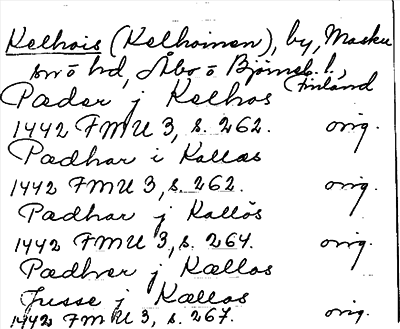 Kelhois (Kelhoinen), by, Masku
sn o hd, Åbo o Björneb. l.,
Finland
Pæder j Kelhos
1442 FMU 3, s. 262. orig.
Pædhar i Kallæs
1442 FMU 3, s. 262. orig.
Pædhar j Kallös
1442 FMU 3, s. 264. orig.
Pædhver j Kællos
Jusse j Kællos
1442 FMU 3, s. 267. orig.